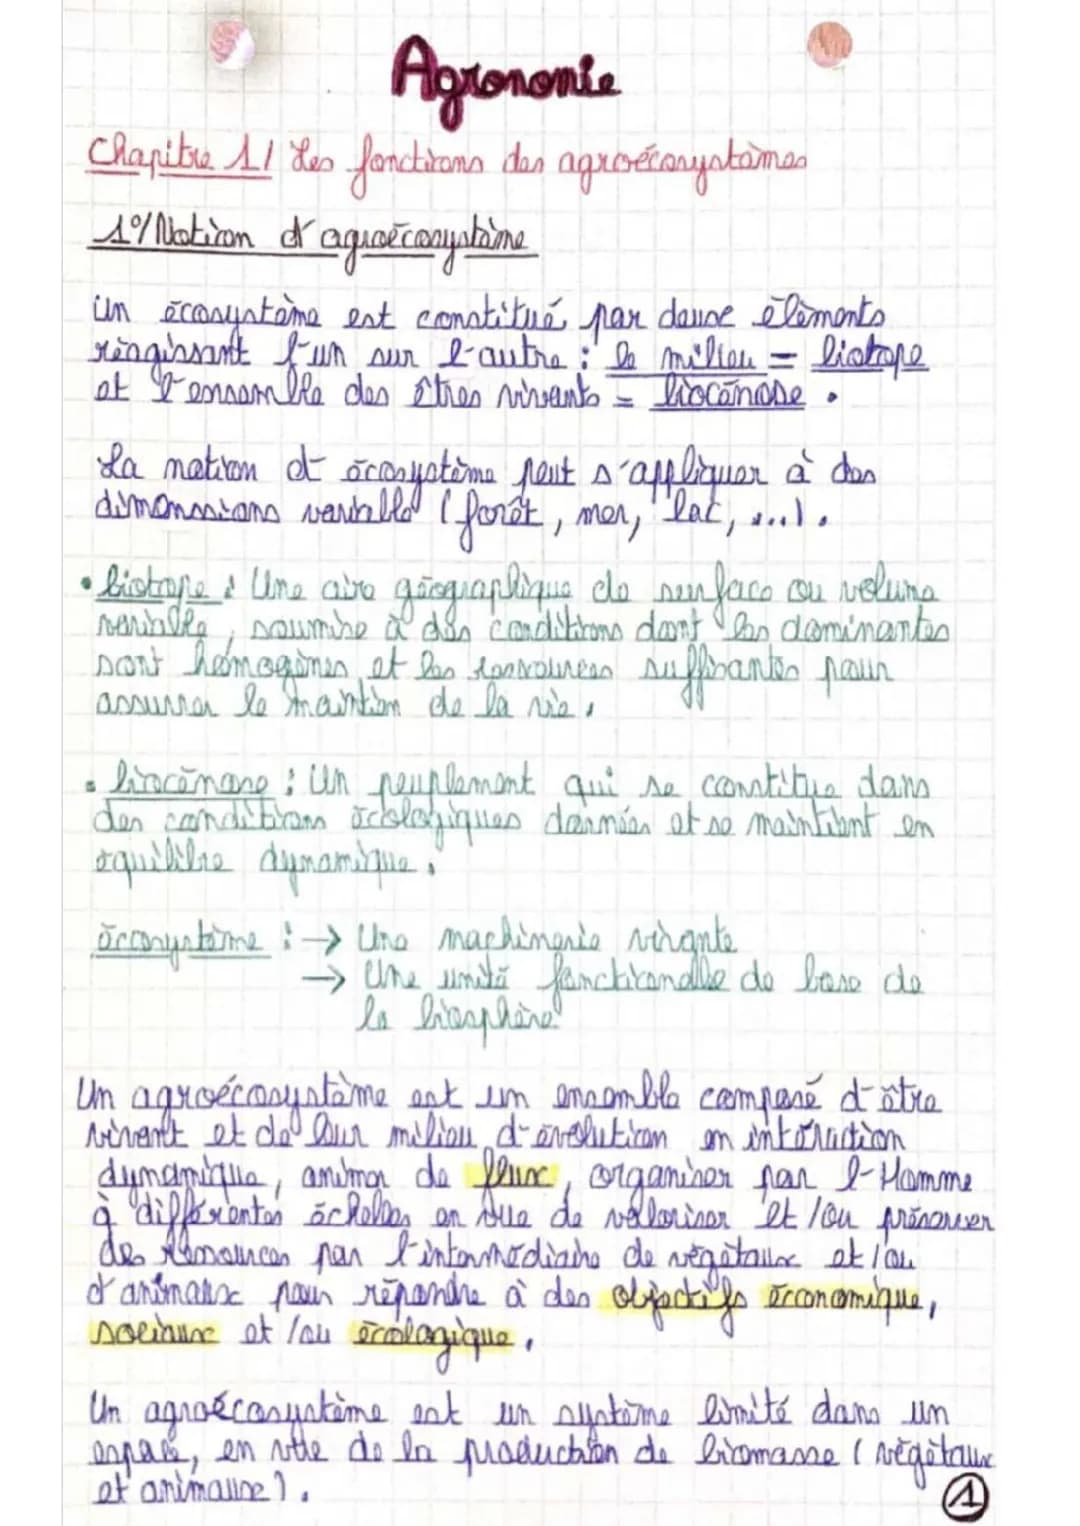 Agronomie
Chapitre 1/ Les fonctions des agroécosystèmes
1°/ Notion d'agroécosystème
Un écosystème est constitué par deux éléments
réagissant l'un sur l'autre : le milieu = biotope
et l'ensemble des êtres vivants = biocénose.
La notion d'écosystème peut s'appliquer à des
dimenssions variable (forêt, mer, lac, ...).
• biotope : Une aire géographique de surface ou volume
variable, soumise à des conditions dont les dominantes
sont homogènes et les ressources suffisantes pour
assurrer le maintien de la vie.
• biocénose : Un peuplement qui se constitue dans
des conditions écologiques données et se maintient en
équilibre dynamique.
écosystème : → Une machinerie vivante
→ Une unité fonctionelle de base de
la biosphère
Un agroécosystème est un ensemble composé d'être
vivent et de leur milieu d'évolution en intéraction
dynamique, animer de flux, organiser par l'Homme
à différentes échelles en vue de valoriser et/ou préserver
des ressources par l'intermédiaire de végétaux et/ou
d'animaux pour répondre à des objectifs économique,
sociaux et/ou écologique.
Un agroécosystème est un système limité dans un
espace, en vue de la production de biomasse (végétaux
et animaux).
1